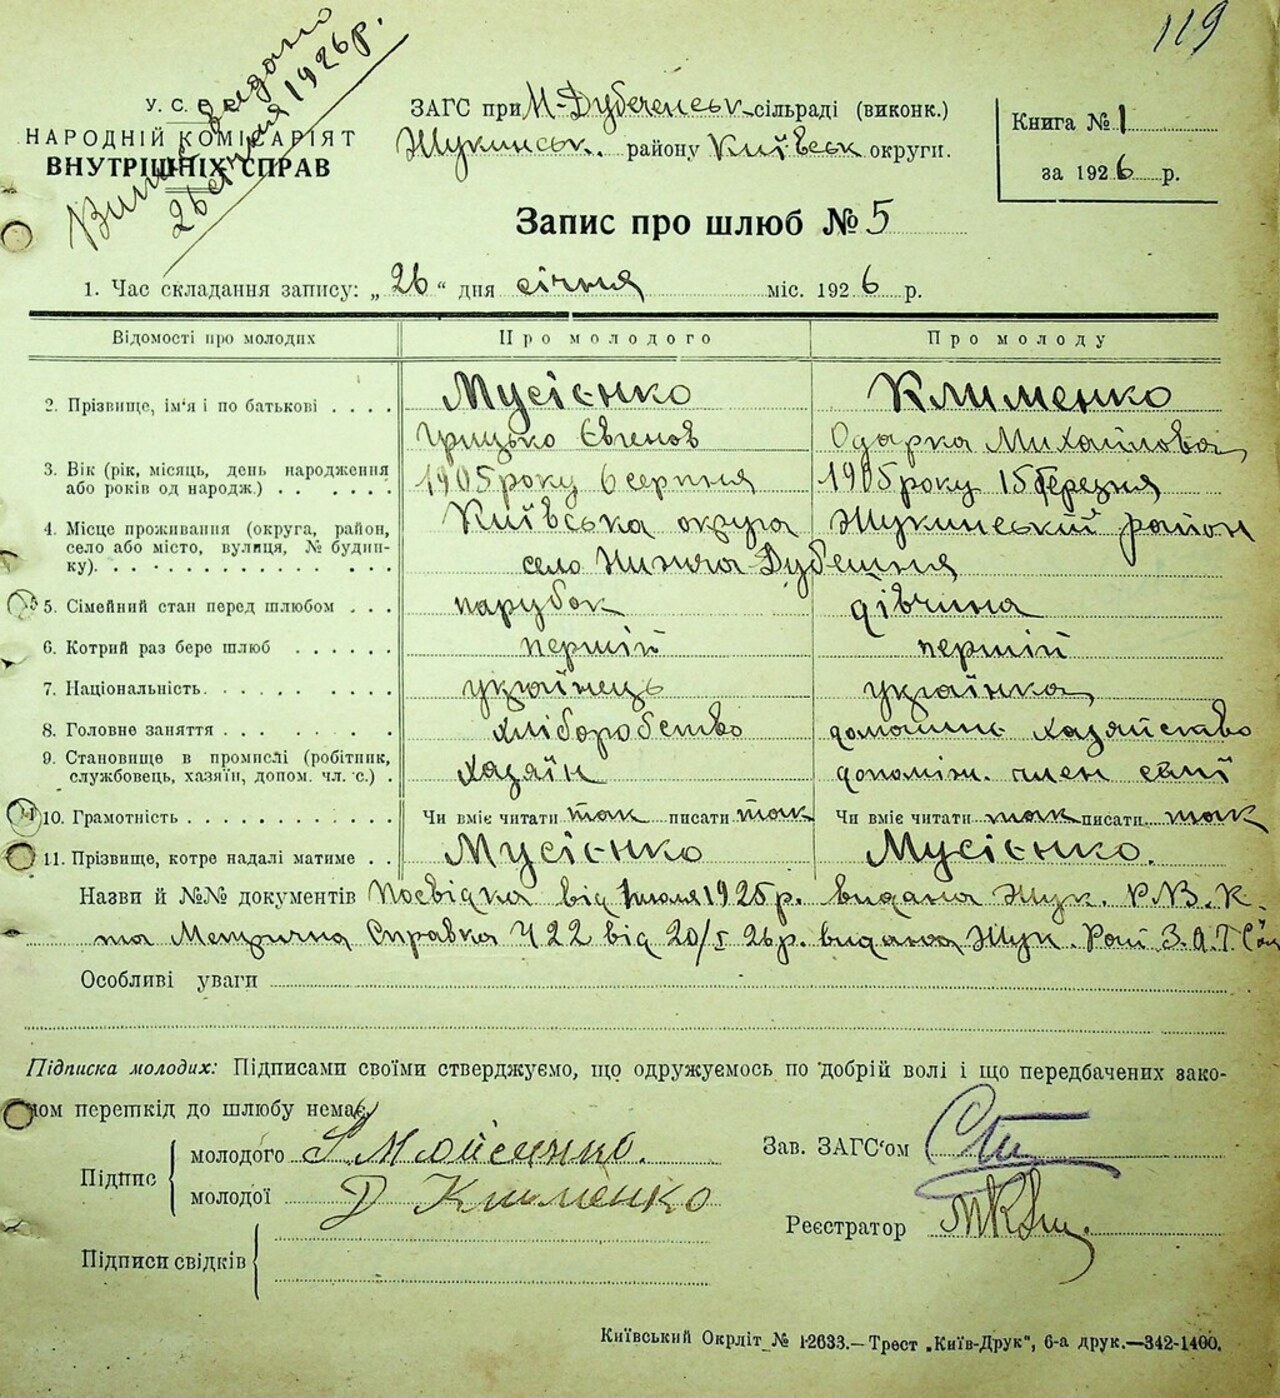 119
Випис видано
26 січня 1926 р.
У. С. Р. Р.
НАРОДНІЙ КОМІСАРІЯТ
ВНУТРІШНІХ СПРАВ
ЗАГС при М-Дубеченськ. сільраді (виконк.)
Жукинськ. району Київськ округи.
Книга № 1
за 1926 р.
Запис про шлюб № 5
1. Час складання запису: „26“ дня січня міс. 1926 р.
Відомості про молодих Про молодого Про молоду
2. Прізвище, ім'я і по батькові . . . . Мусієнко Клименко
Грицько Євгенов Одарка Михайлова
3. Вік (рік, місяць, день народження або років од народж.) . . . . . . 1905 року 6 серпня 1905 року 15 березня
4. Місце проживання (округа, район, село або місто, вулиця, № будинку). Київська округа Жукинський район
село Нижча Дубешня
5. Сімейний стан перед шлюбом . . . парубок дівчина
6. Котрий раз бере шлюб . . . . . . перший перший
7. Національність. українець українка
8. Головне заняття хліборобство домашнь хазяйство
9. Становище в промислі (робітник, службовець, хазяїн, допом. чл. с.) . хазяїн допоміж. член сімї
10. Грамотність Чи вміє читати так писати так Чи вміє читати так писати так
11. Прізвище, котре надалі матиме . . Мусієнко Мусієнко.
Назви й №№ документів Посвідка від 1 июля 1925 р. видана Жук. Р.В.К.
та Метрична Справка Ч 22 від 20/I 26 р. видана Жук. Рай З.А.Г.С'ом
Особливі уваги
Підписка молодих: Підписами своїми стверджуємо, що одружуємось по добрій волі і що передбачених зако-
ном перешкід до шлюбу немає.
Підпис
молодого Мойсеенко.
молодої Клименко
Підписи свідків
Зав. ЗАГС'ом
Реєстратор
Київський Окрліт № 12633.—Трест „Київ-Друк", 6-а друк.—342-1400.